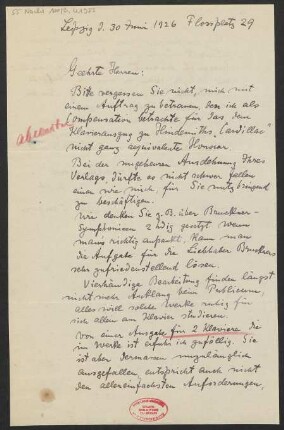 Leipzig d. 30 Juni 1926 Flossplatz 29
Geehrte Herren:
Bitte vergessen Sie nicht, mich mit
einem Auftrag zu betrauen, den ich als
Compensation betrachte für das, dem
Klavierauszug zu Hindemiths "Cardillac"
nicht ganz aequivalente Honorar
Bei der ungeheuren Ausdehnung Ihres
Verlags, dürfte es nicht schwer fallen
einen wie mich, für Sie nutzbringend
zu beschäftigen.
Wie denken Sie z. B. über Bruckner-
Symphonieen 2 hdig gesetzt wenn
mans richtig anpackt, kann man
die Aufgabe für die Liebhaber Bruckners
sehr zufriedenstellend lösen.
Vierhändige Bearbeitung finden längst
nicht mehr Anklang beim Publicum,
alles will solche Werke ruhig für
sich allein am Klavier studieren.
Von einer Ausgabe für 2 Klaviere die
im Werke ist erfuhr ich zufällig. Sie
ist aber dermassen unzulänglich
ausgefallen, entspricht auch nicht
den allereinfachsten Anforderungen,